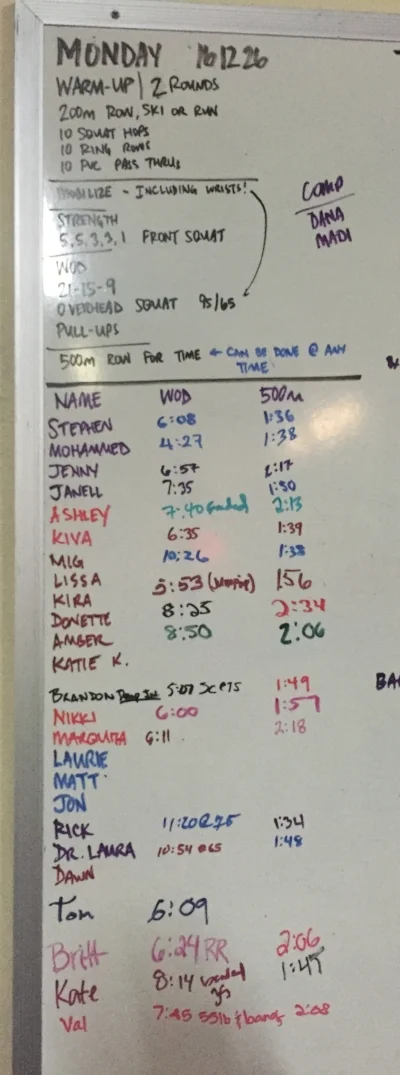 MONDAY 161226
WARM-UP | 2 ROUNDS
200m ROW, SKI OR RUN
10 SQUAT HOPS
10 RING ROWS
10 PVC PASS THRUS
MOBILIZE - INCLUDING WRISTS!
COMP
DANA
MADI
STRENGTH
5,5,3,3,1 FRONT SQUAT
WOD
21-15-9
OVERHEAD SQUAT 95/65
PULL-UPS
500m ROW FOR TIME ← CAN BE DONE @ ANY
TIME
NAME WOD 500m
STEPHEN 6:08 1:36
MOHAMMED 4:27 1:38
JENNY 6:57 2:17
JANELL 7:35 1:50
ASHLEY 7:40 2:13
KIVA 6:35 1:39
MIG 10:26 1:38
LISSA 5:53 156
KIRA 8:25 2:34
DONETTE 8:50 2:06
AMBER
KATIE K.
BRANDON 5:07 1:49
NIKKI 6:00 1:57
MARQUITA 6:11 2:18
LAURIE
MATT
JON
RICK 11:20@75 1:34
DR. LAURA 10:54 @65 1:48
DAWN
Tom 6:09
Britt 6:24 RR 2:06
Kate 8:14 1:47
Val 7:45 55lb + bands 2:08
BA